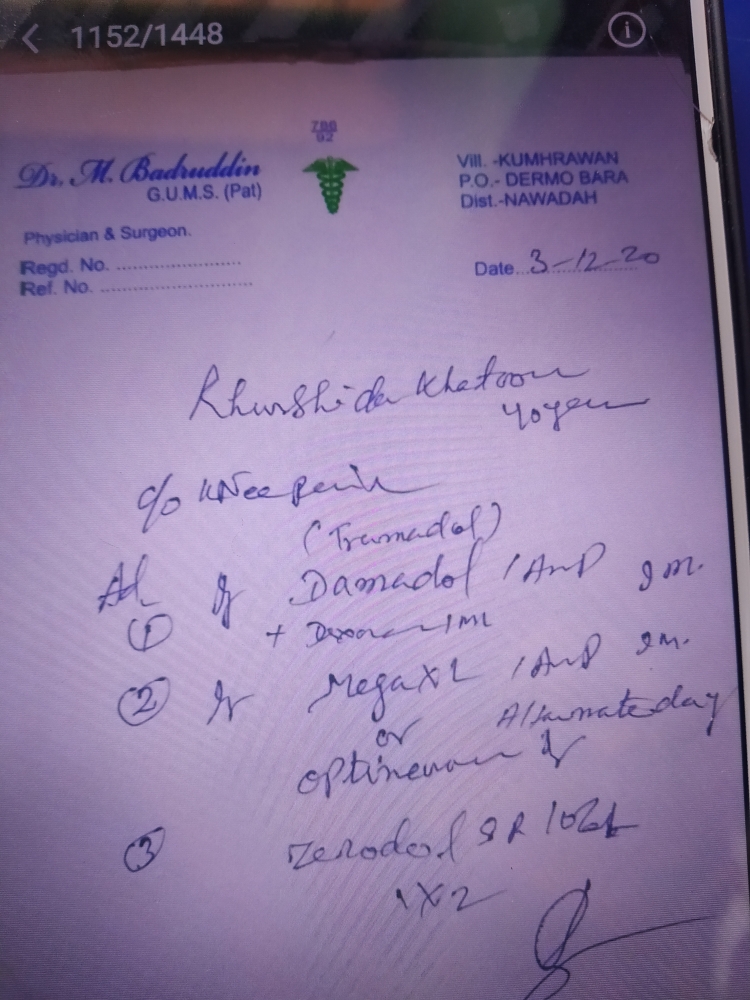 1152/1448
786
92
Dr. M. Badruddin
G.U.M.S. (Pat)
Vill. -KUMHRAWAN
P.O.- DERMO BARA
Dist.-NAWADAH
Physician & Surgeon.
Regd. No. ........................
Ref. No. .............................
Date...3-12-20
Khurshida Khatoon
40 year
c/o KNee pain
(Tramadol)
Ad
① Damadol 1 AmP I M.
+ 1 ML
② MegaXL 1 AmP I M.
Alternate day
or
optineuron
③ Zerodol SR 10
1X2